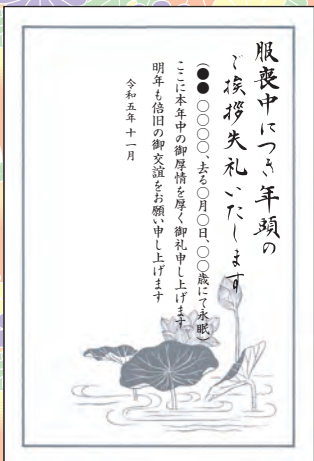 服喪中につき年頭の
ご挨拶失礼いたします
(●● ○○○○、去る○月○日、○○歳にて永眠)
ここに本年中の御厚情を厚く御礼申し上げます
明年も倍旧の御交誼をお願い申し上げます
令和五年十一月